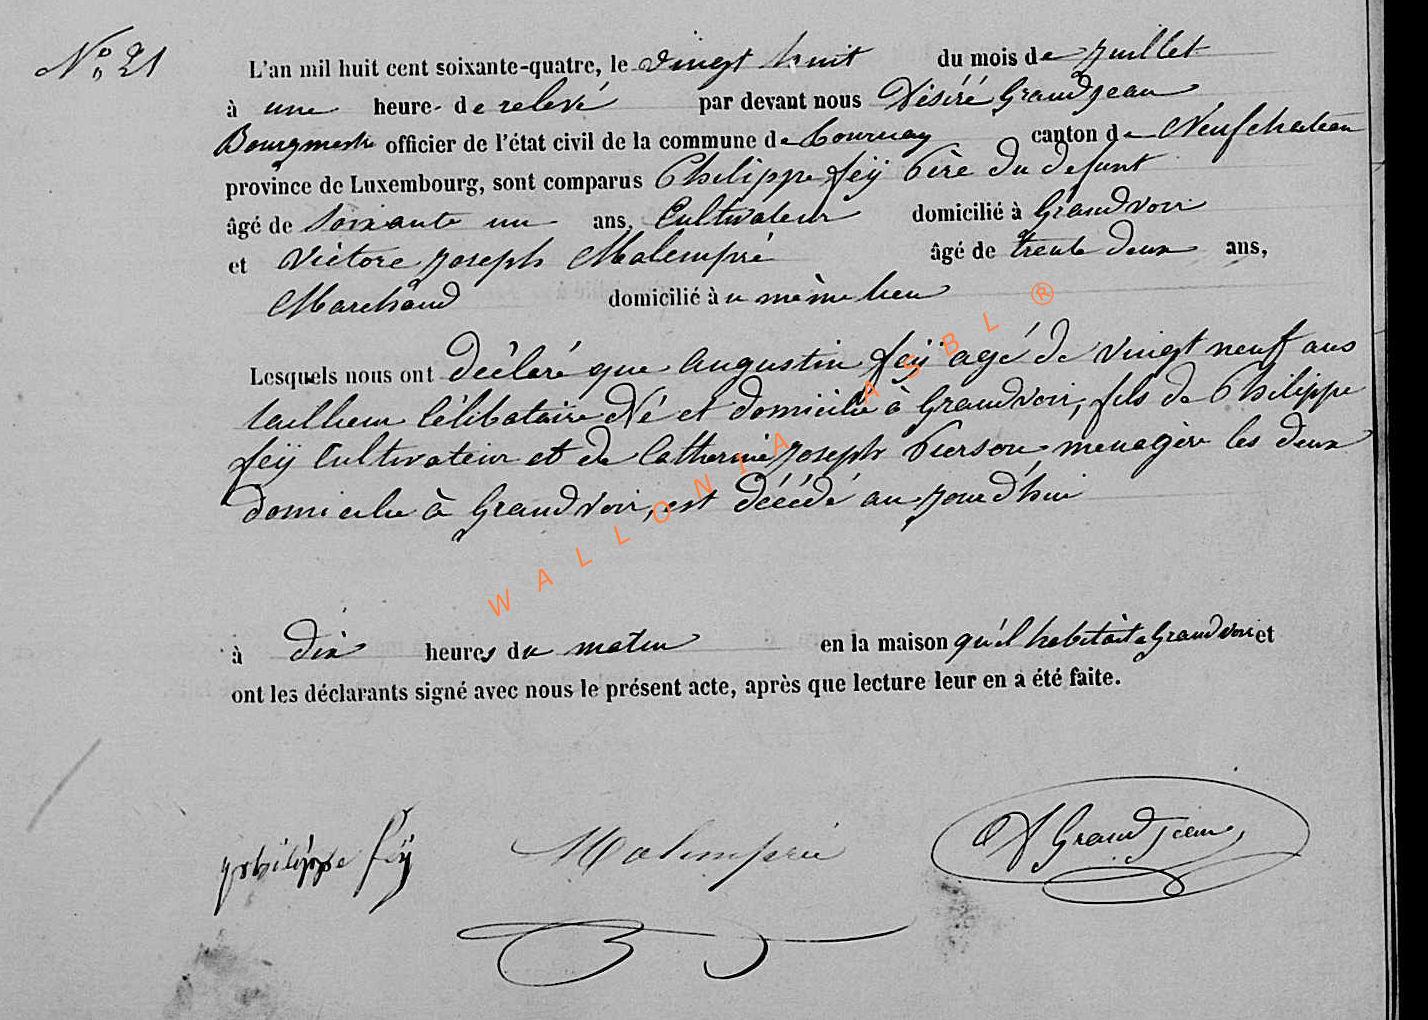 N° 21
L'an mil huit cent soixante-quatre, le vingt huit du mois de juillet
à une heure de relevé par devant nous Désiré Grandjean
Bourgmestre officier de l'état civil de la commune de Tournay canton de Neufchateau
province de Luxembourg, sont comparus Philippe feÿ Père du defunt
âgé de soixante un ans, Cultivateur domicilié à Grandvoir
et Victore joseph Malempré âgé de trente deux ans,
Marchand domicilié à u même lieu
Lesquels nous ont déclaré que augustin feÿ agé de vingt neuf ans
tailleur célibataire Né et domicilié à Grandvoir, fils de Philippe
feÿ Cultivateur et de Catherine joseph Pierson menagère les deux
domicilié à Grandvoir, est décédé au jourd'hui
à dix heures du matin en la maison qu'il habitait a Grandvoir et
ont les déclarants signé avec nous le présent acte, après que lecture leur en a été faite.
philippe feÿ Malempré D Grandjean
WALLONIA ASBL ®